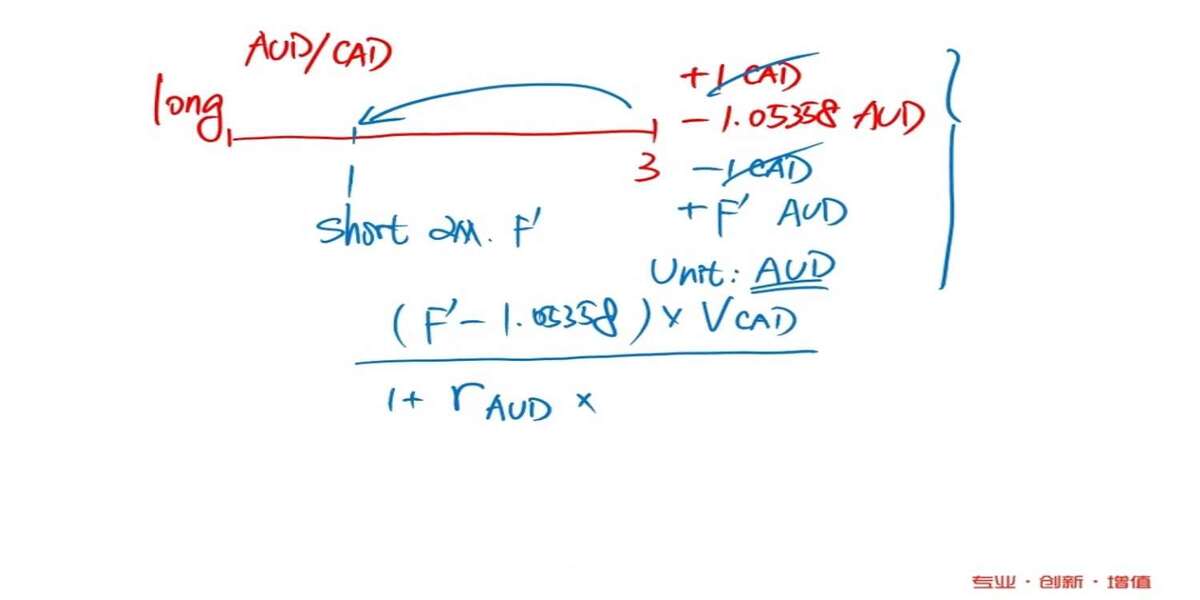 AUD/CAD
long
+1 CAD
- 1.05358 AUD
1
3
-1 CAD
+ F' AUD
short 2M. F'
Unit: AUD
(F' - 1.05358) × VCAD
1+ rAUD ×
专业·创新·增值